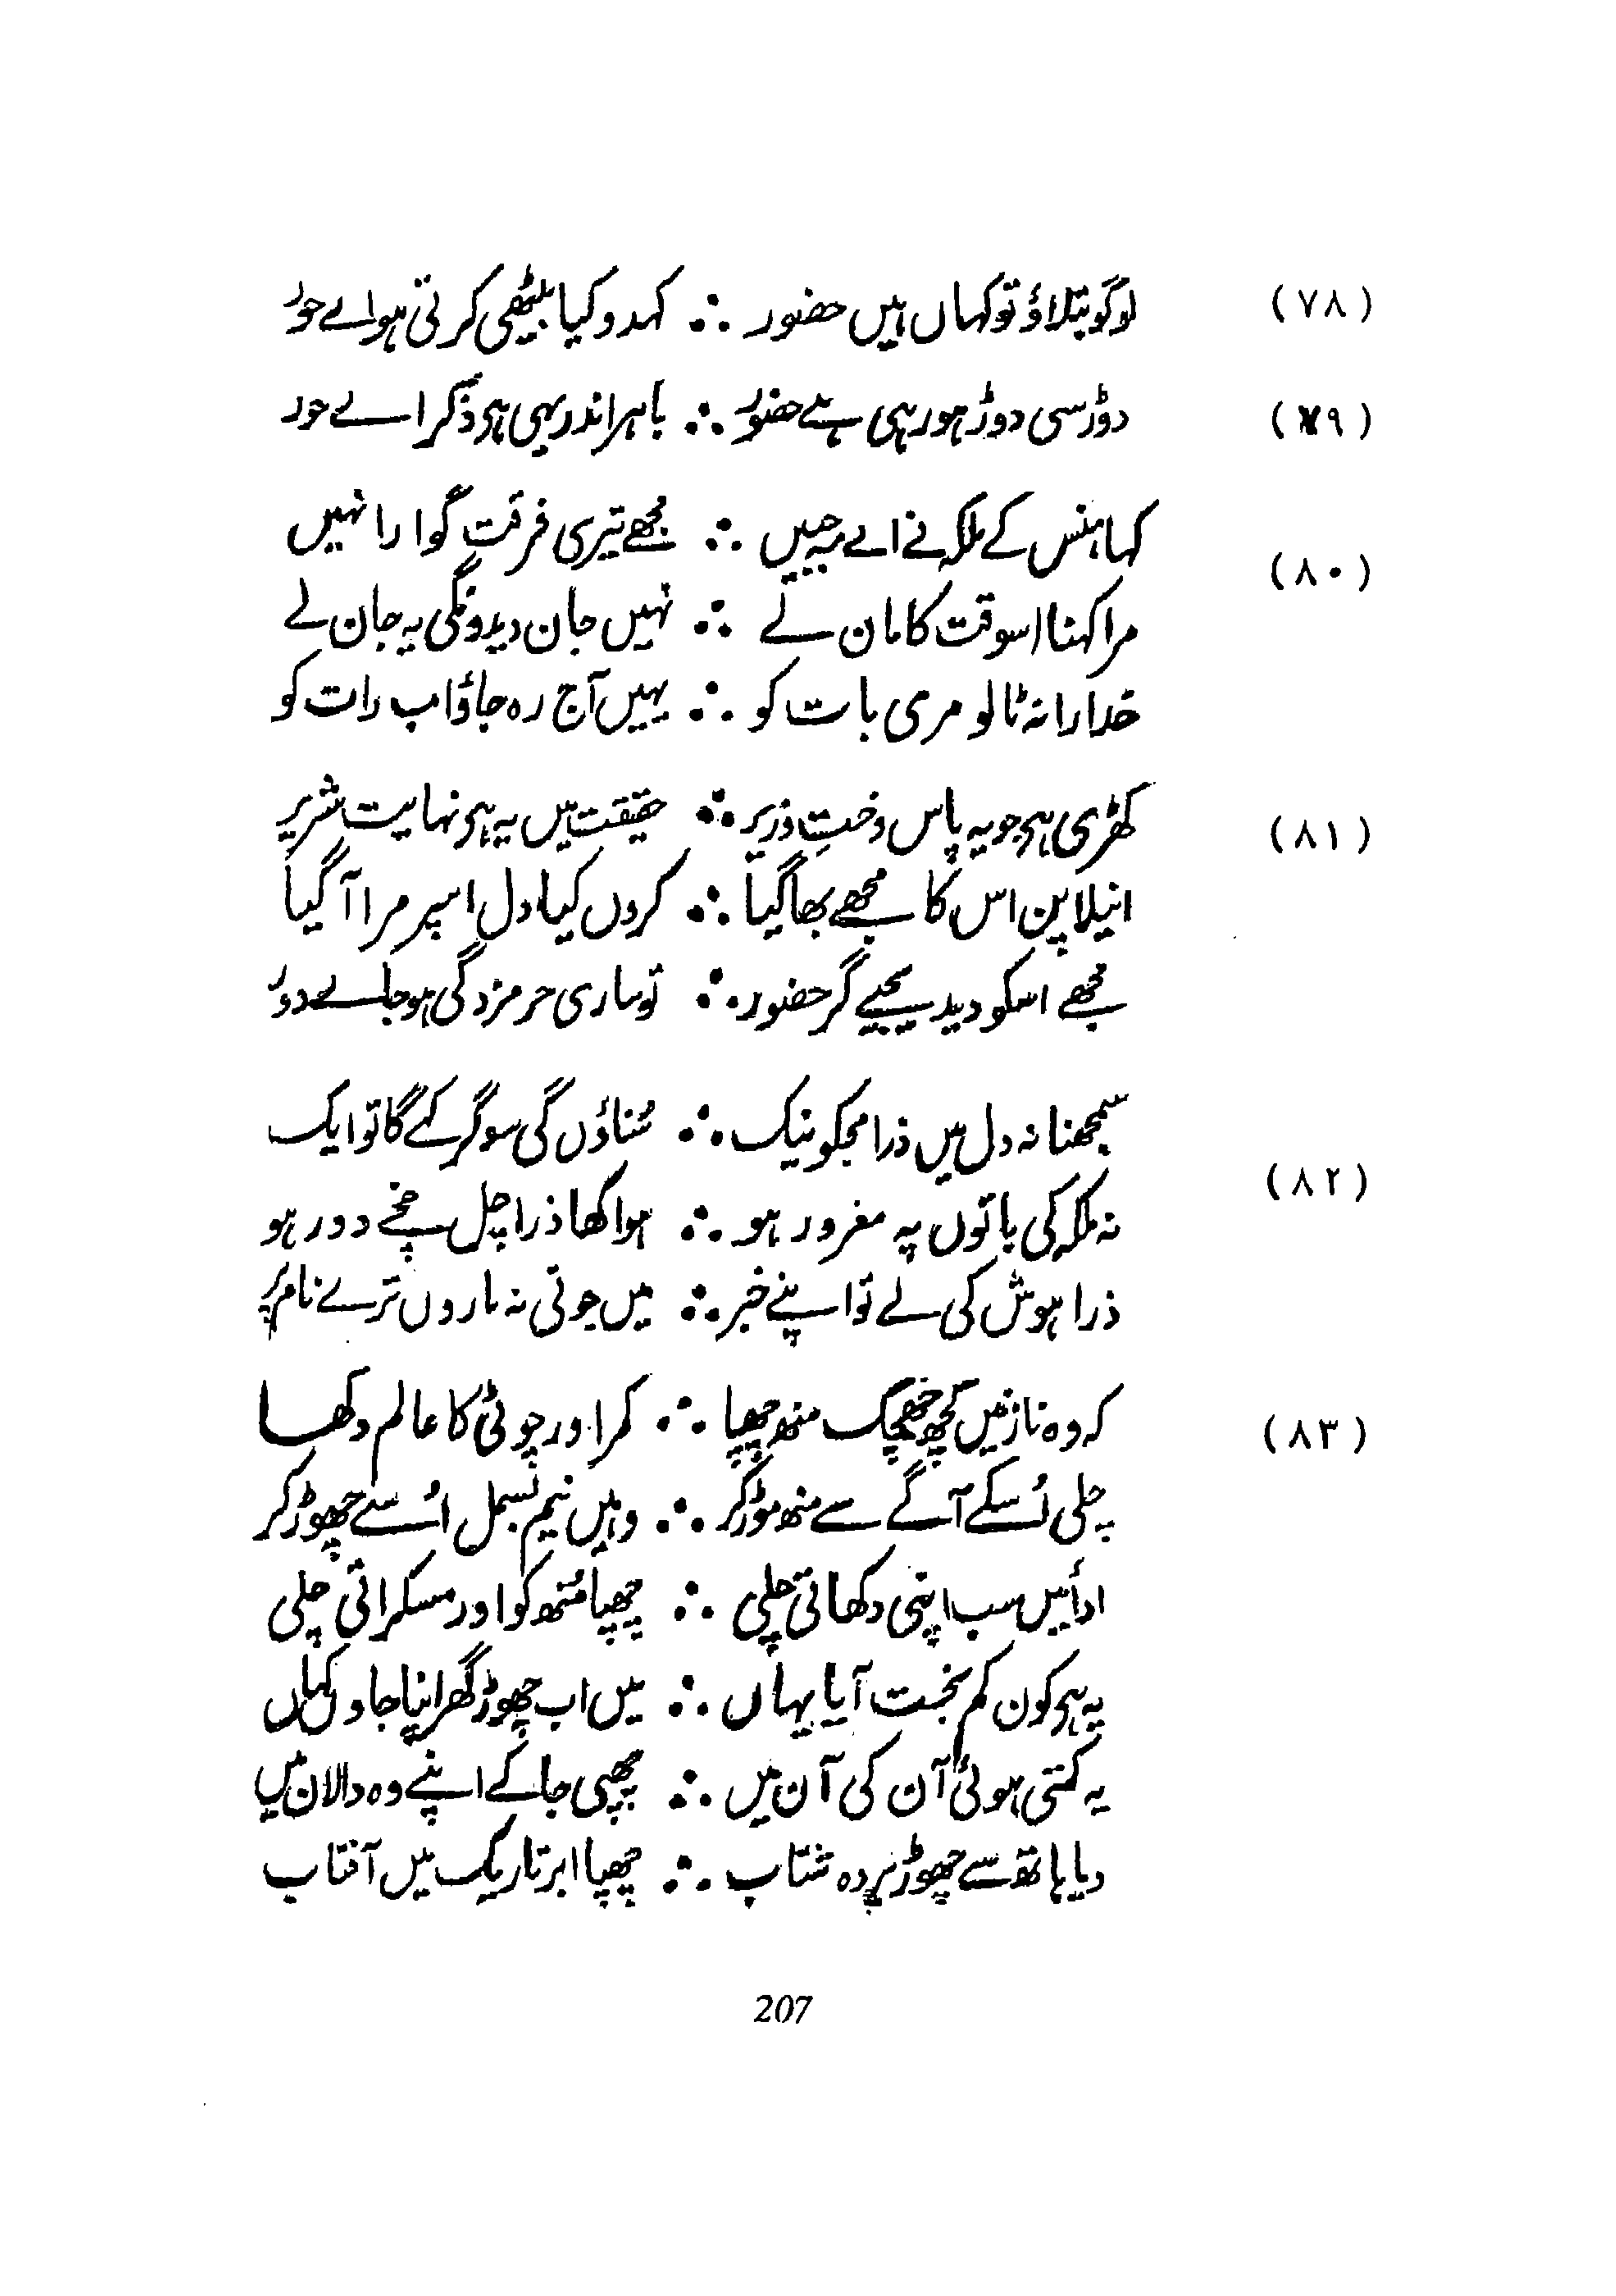 (۷۸) لوگو بتلاؤ تو کہاں ہیں حضور ∴ کہدو کیا بیٹھی کرتی ہو اے حور
(۷۹) دوڑ سی دوڑ ہو رہی ہے حضور ∴ باہر اندر یہی ہی ذکر اے حور
کہا ہنس کے ملکہ نے اے مہ جبیں ∴ مجھے تیری فرقت گوارا نہیں
(۸۰)
مرا کہنا اسوقت کا مان لے ∴ نہیں جان دیدونگی یہ جان لے
خدارا نہ ٹالو مری بات کو ∴ یہیں آج رہ جاؤ اب رات کو
(۸۱) کھڑی ہی جو یہ پاس دخت وزیر ∴ حقیقت میں یہ ہی نہایت شریر
انیلا پن اس کا مجھے بھا گیا ∴ کروں کیا دل اسپر مرا آ گیا
مجھے اسکو دیدیجیے گر حضور ∴ تو ساری حرمزدگی ہو جاے دور
سمجھنا نہ دل میں ذرا مجکو نیک ∴ سُناؤں گی سو گر کہے گا تو ایک
(۸۲)
نہ ملکہ کی باتوں پہ مغرور ہو ∴ ہوا کھا ذرا چل بچے دور ہو
ذرا ہوش کی لے تو اپنے خبر ∴ میں جوتی نہ ماروں ترے نام پر
(۸۳) کہ وہ نازنیں کچھ جھجک منھ چھپا ∴ کمر اور چوٹی کا عالم دکھا
چلی اُسکے آگے سے منھ موڑ کر ∴ وہیں نیم بسمل اُسے چھوڑ کر
ادائیں سب اپنی دکھاتی چلی ∴ چھپا مُنھ کو اور مسکراتی چلی
یہ ہی کون کم بخت آیا یہاں ∴ میں اب چھوڑ گھر اپنا جاوں کہاں
یہ کہتی ہوئی آن کی آن میں ∴ چھپی جا کے اپنے وہ دالان میں
دیا ہاتھ سے چھوڑ پردہ شتاب ∴ چھپا ابر تاریک میں آفتاب
207